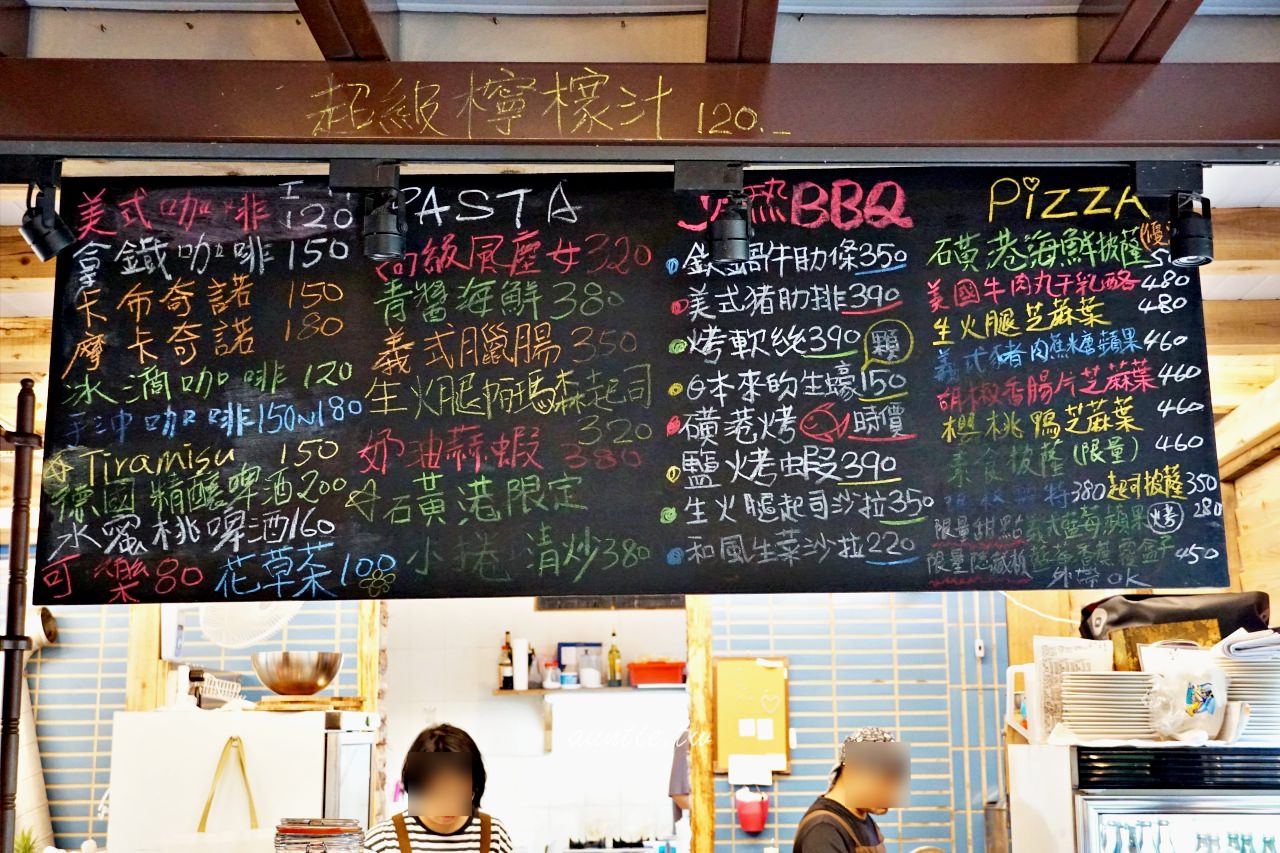 超級檸檬汁 120.-
美式咖啡 120
拿鐵咖啡 150
卡布奇諾 150
摩卡奇諾 180
冰滴咖啡 120
手沖咖啡150~180
Tiramisu 150
德國精釀啤酒200
水蜜桃啤酒160
可樂80 花草茶100
PASTA
風塵女320
青醬海鮮380
義式臘腸350
生火腿帕瑪森起司
320
奶油蒜蝦 380
石黃港限定
小捲清炒380
火熱BBQ
牛肋條350
美式豬肋排390
烤軟絲390
日本來的生蠔150 顆
磺港烤 時價
鹽烤蝦390
生火腿起司沙拉350
和風生菜沙拉220
PiZZA
石磺巷海鮮披薩
美國牛肉丸子乳酪480
生火腿芝麻葉 480
義式豬肉焦糖蘋果460
胡椒香腸片芝麻葉460
櫻桃鴨芝麻葉 460
素食披薩(限量) 460
380 起司披薩350
限量甜點 義式藍莓蘋果 烤 280
限量隱藏版 450
外帶OK
auntie.tw